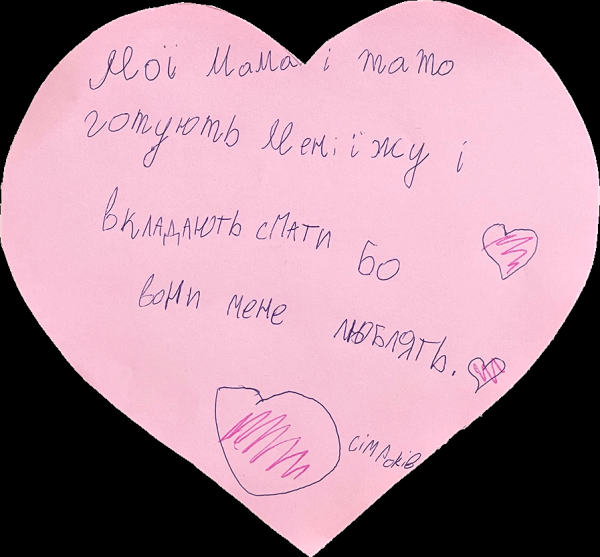 Мої мама і тато
готують мені їжу і
вкладають смати бо
вони мене люблять.
сім років